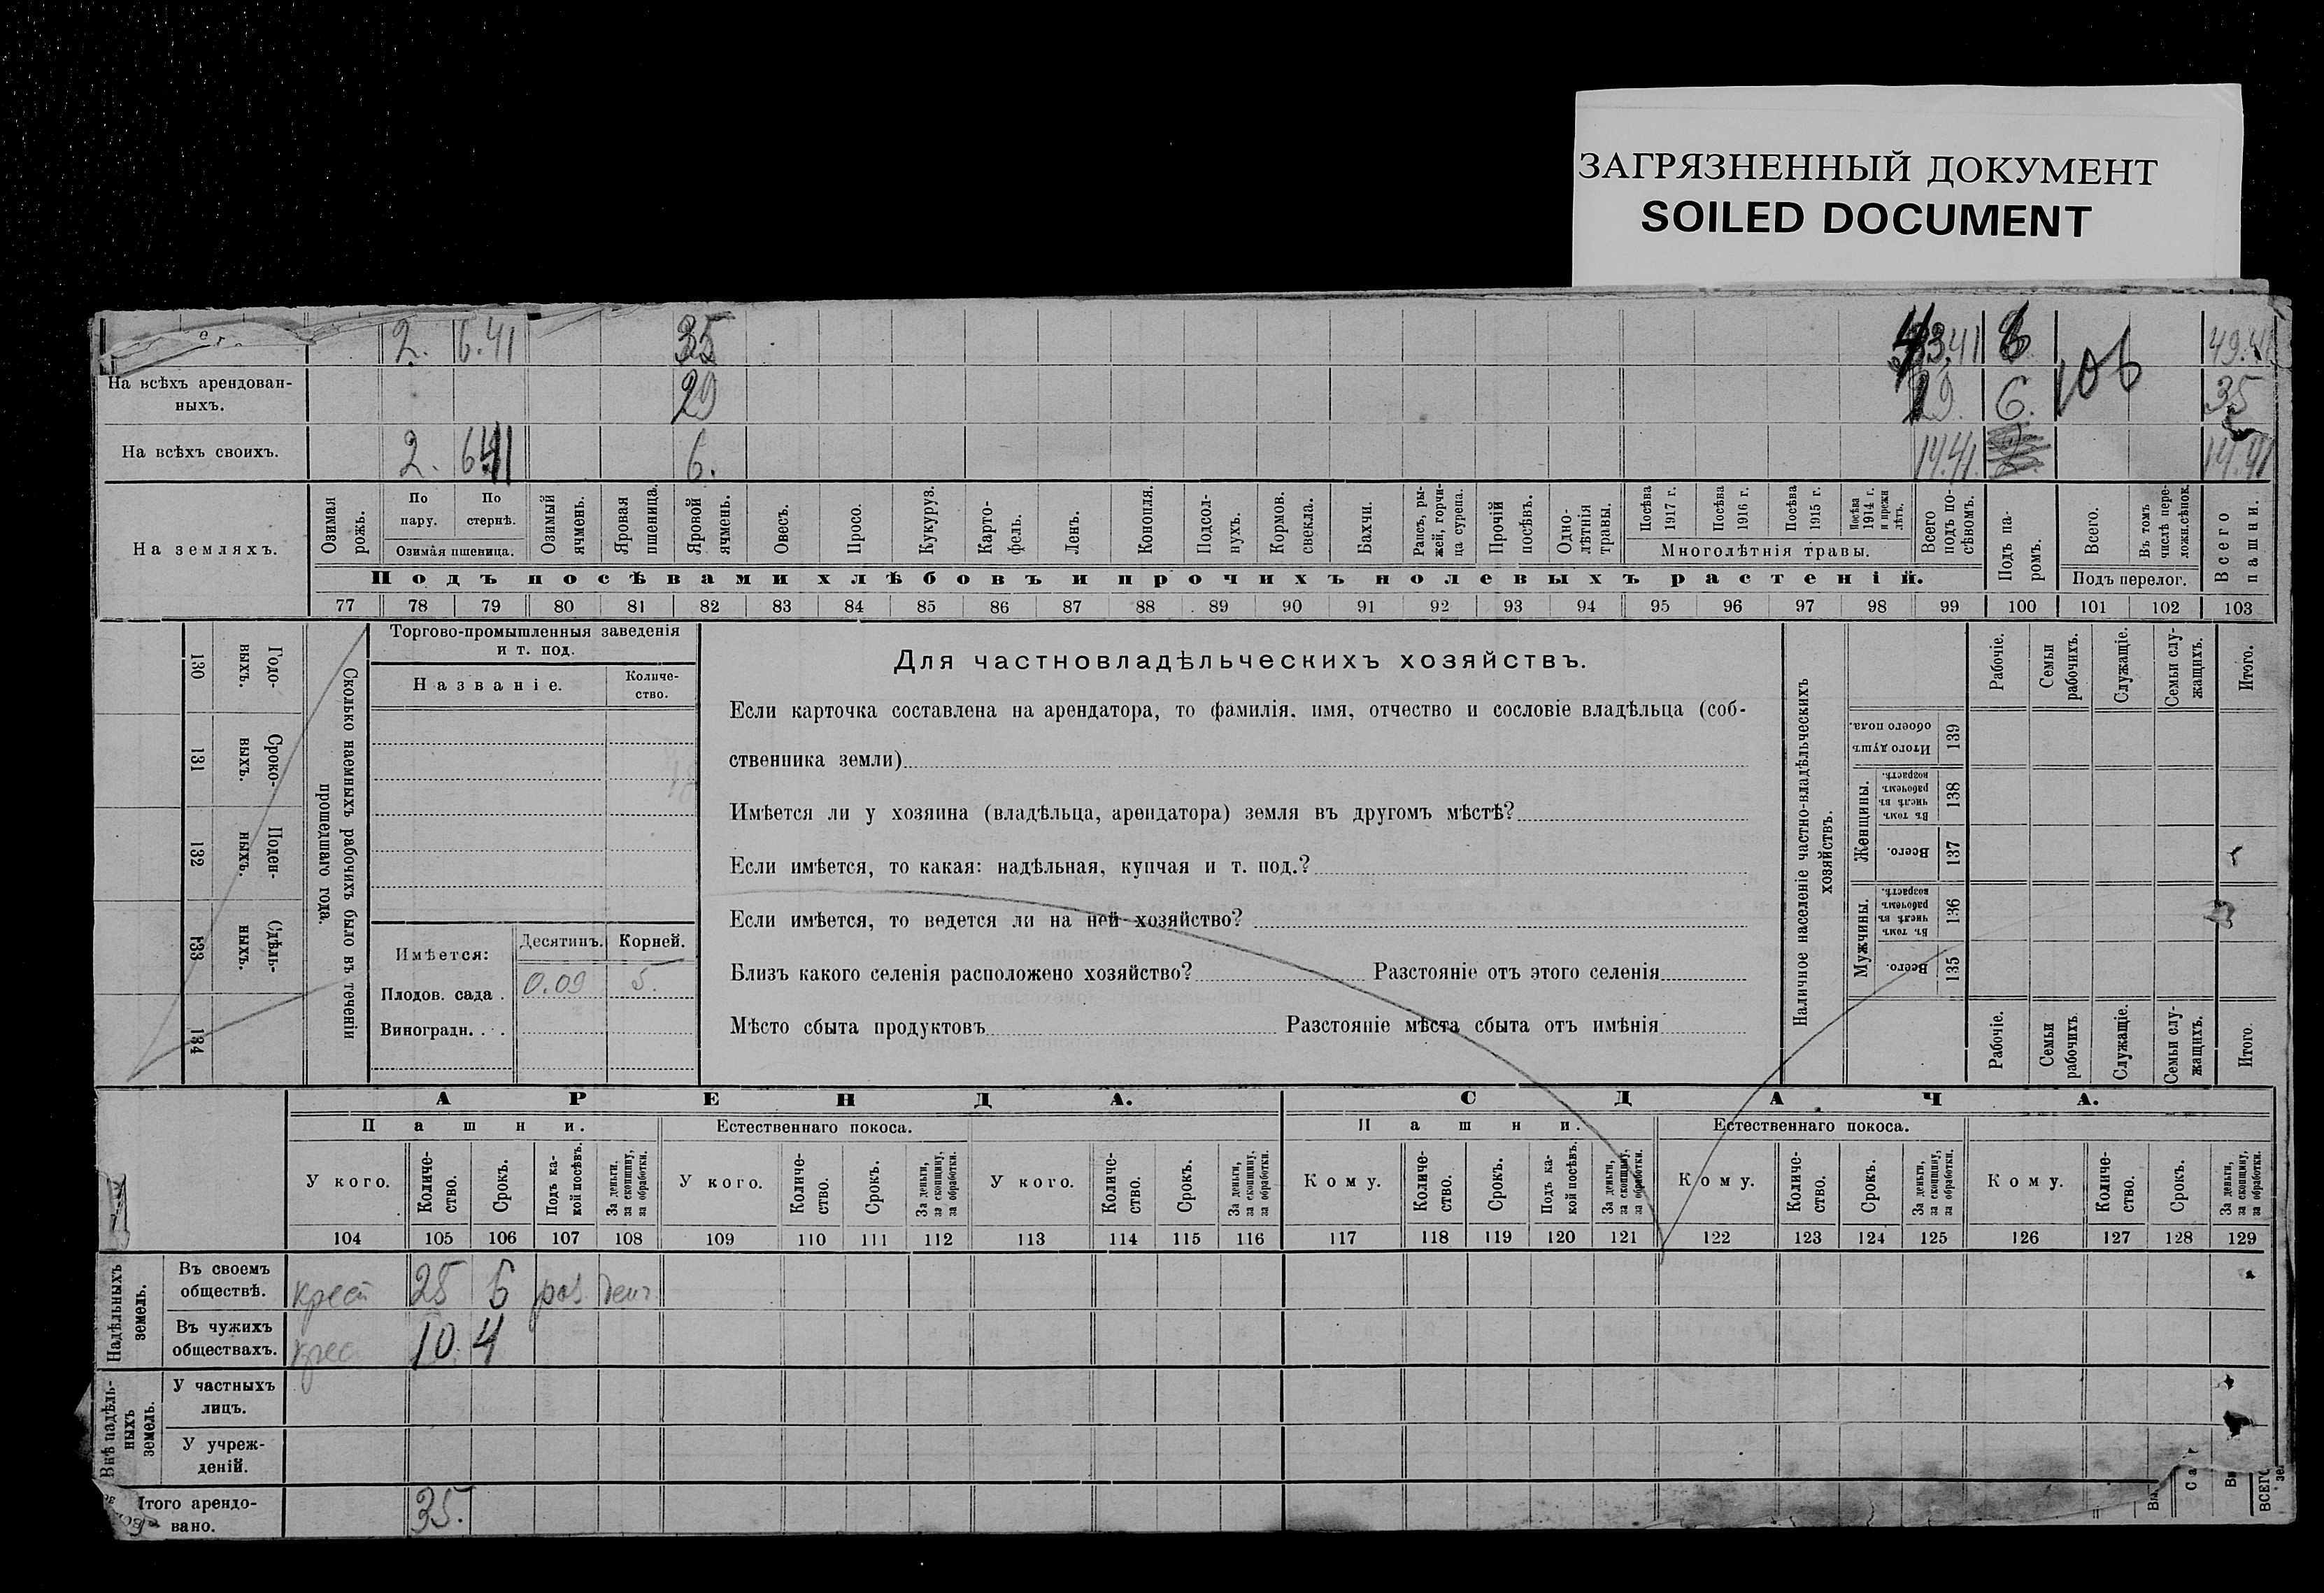 ЗАГРЯЗНЕННЫЙ ДОКУМЕНТ
SOILED DOCUMENT
2. 6.41 35 43.41 6 49.41
На всѣхъ арендован-
ныхъ.
29 29. 6. 106 35
На всѣхъ своихъ. 2. 6 41 6. 14.41. 14.41
На земляхъ.
Озимая рожь.
По пару.
По стернѣ.
Озимая пшеница.
Озимый ячмень.
Яровая пшеница.
Яровой ячмень.
Овесъ.
Просо.
Кукуруз.
Карто-
фель.
Ленъ.
Конопля.
Подсол-
нухъ.
Кормов.
свекла.
Бахчи.
Рапсъ, ры-
жей, горчи-
ца сурепа.
Прочій
посѣвъ.
Одно-
лѣтнія
травы.
Посѣва
1917 г.
Посѣва
1916 г.
Посѣва
1915 г.
Посѣва
1914 г.
и прежн
лѣтъ.
Многолѣтнія травы.
Всего
подъ по-
сѣвомъ.
Подъ па-
ромъ.
Всего.
Въ томъ
числѣ пере-
лож.сѣнок.
Подъ перелог.
Всего
пашни.
Подъ посѣвами хлѣбовъ и прочихъ полевыхъ растеній.
77 78 79 80 81 82 83 84 85 86 87 88 89 90 91 92 93 94 95 96 97 98 99 100 101 102 103
130 Годо-
выхъ.
131 Сроко-
выхъ.
132 Поден-
ныхъ.
133 Сдѣль-
ныхъ.
134
Сколько наемныхъ рабочихъ было въ теченіи
прошедшаго года.
Торгово-промышленныя заведенія
и т. под.
Названіе.
Количе-
ство.
Имѣется: Десятинъ. Корней.
Плодов. сада . 0.09 5.
Виноградн. . .
Для частновладѣльческихъ хозяйствъ.
Если карточка составлена на арендатора, то фамилія, имя, отчество и сословіе владѣльца (соб-
ственника земли)
Имѣется ли у хозяина (владѣльца, арендатора) земля въ другомъ мѣстѣ?
Если имѣется, то какая: надѣльная, купчая и т. под.?
Если имѣется, то ведется ли на ней хозяйство?
Близъ какого селенія расположено хозяйство? Разстояніе отъ этого селенія
Мѣсто сбыта продуктовъ Разстояніе мѣста сбыта отъ имѣнія
Наличное населеніе частно-владѣльческихъ
хозяйствъ.
Рабочіе.
Семьи
рабочихъ.
Служащіе.
Семьи слу-
жащихъ.
Итого.
Итого душъ
обоего пола.
139
Женщины.
Въ томъ
числѣ въ
рабочемъ
возрастѣ.
138
Всего.
137
Мужчины.
Въ томъ
числѣ въ
рабочемъ
возрастѣ.
136
Всего.
135
Рабочіе.
Семьи
рабочихъ
Служащіе.
Семьи слу-
жащихъ.
Итого
АРЕНДА. СДАЧА.
Пашни. Естественнаго покоса. Пашни. Естественнаго покоса.
У кого.
Количе-
ство.
Срокъ.
Подъ ка-
кой посѣвъ.
За деньги,
за скопщину,
за обработки.
У кого.
Количе-
ство.
Срокъ.
За деньги,
за скопщину,
за обработки.
У кого.
Количе-
ство.
Срокъ.
За деньги,
за скопщину,
за обработки.
Кому.
Количе-
ство.
Срокъ.
Подъ ка-
кой посѣвъ.
За деньги,
за скопщину,
за обработки.
Кому.
Количе-
ство.
Срокъ.
За деньги,
за скопщину,
за обработки.
Кому.
Количе-
ство.
Срокъ.
За деньги,
за скопщину,
за обработки.
104 105 106 107 108 109 110 111 112 113 114 115 116 117 118 119 120 121 122 123 124 125 126 127 128 129
Надѣльныхъ
земель.
Въ своемъ
обществѣ.
крест 25 6 раз. денг.
Въ чужихъ
обществахъ.
крес 10. 4
Внѣ надѣль-
ныхъ
земель.
У частныхъ
лицъ.
У учреж-
деній.
Итого арендо-
вано.
35.
ВСЕГО